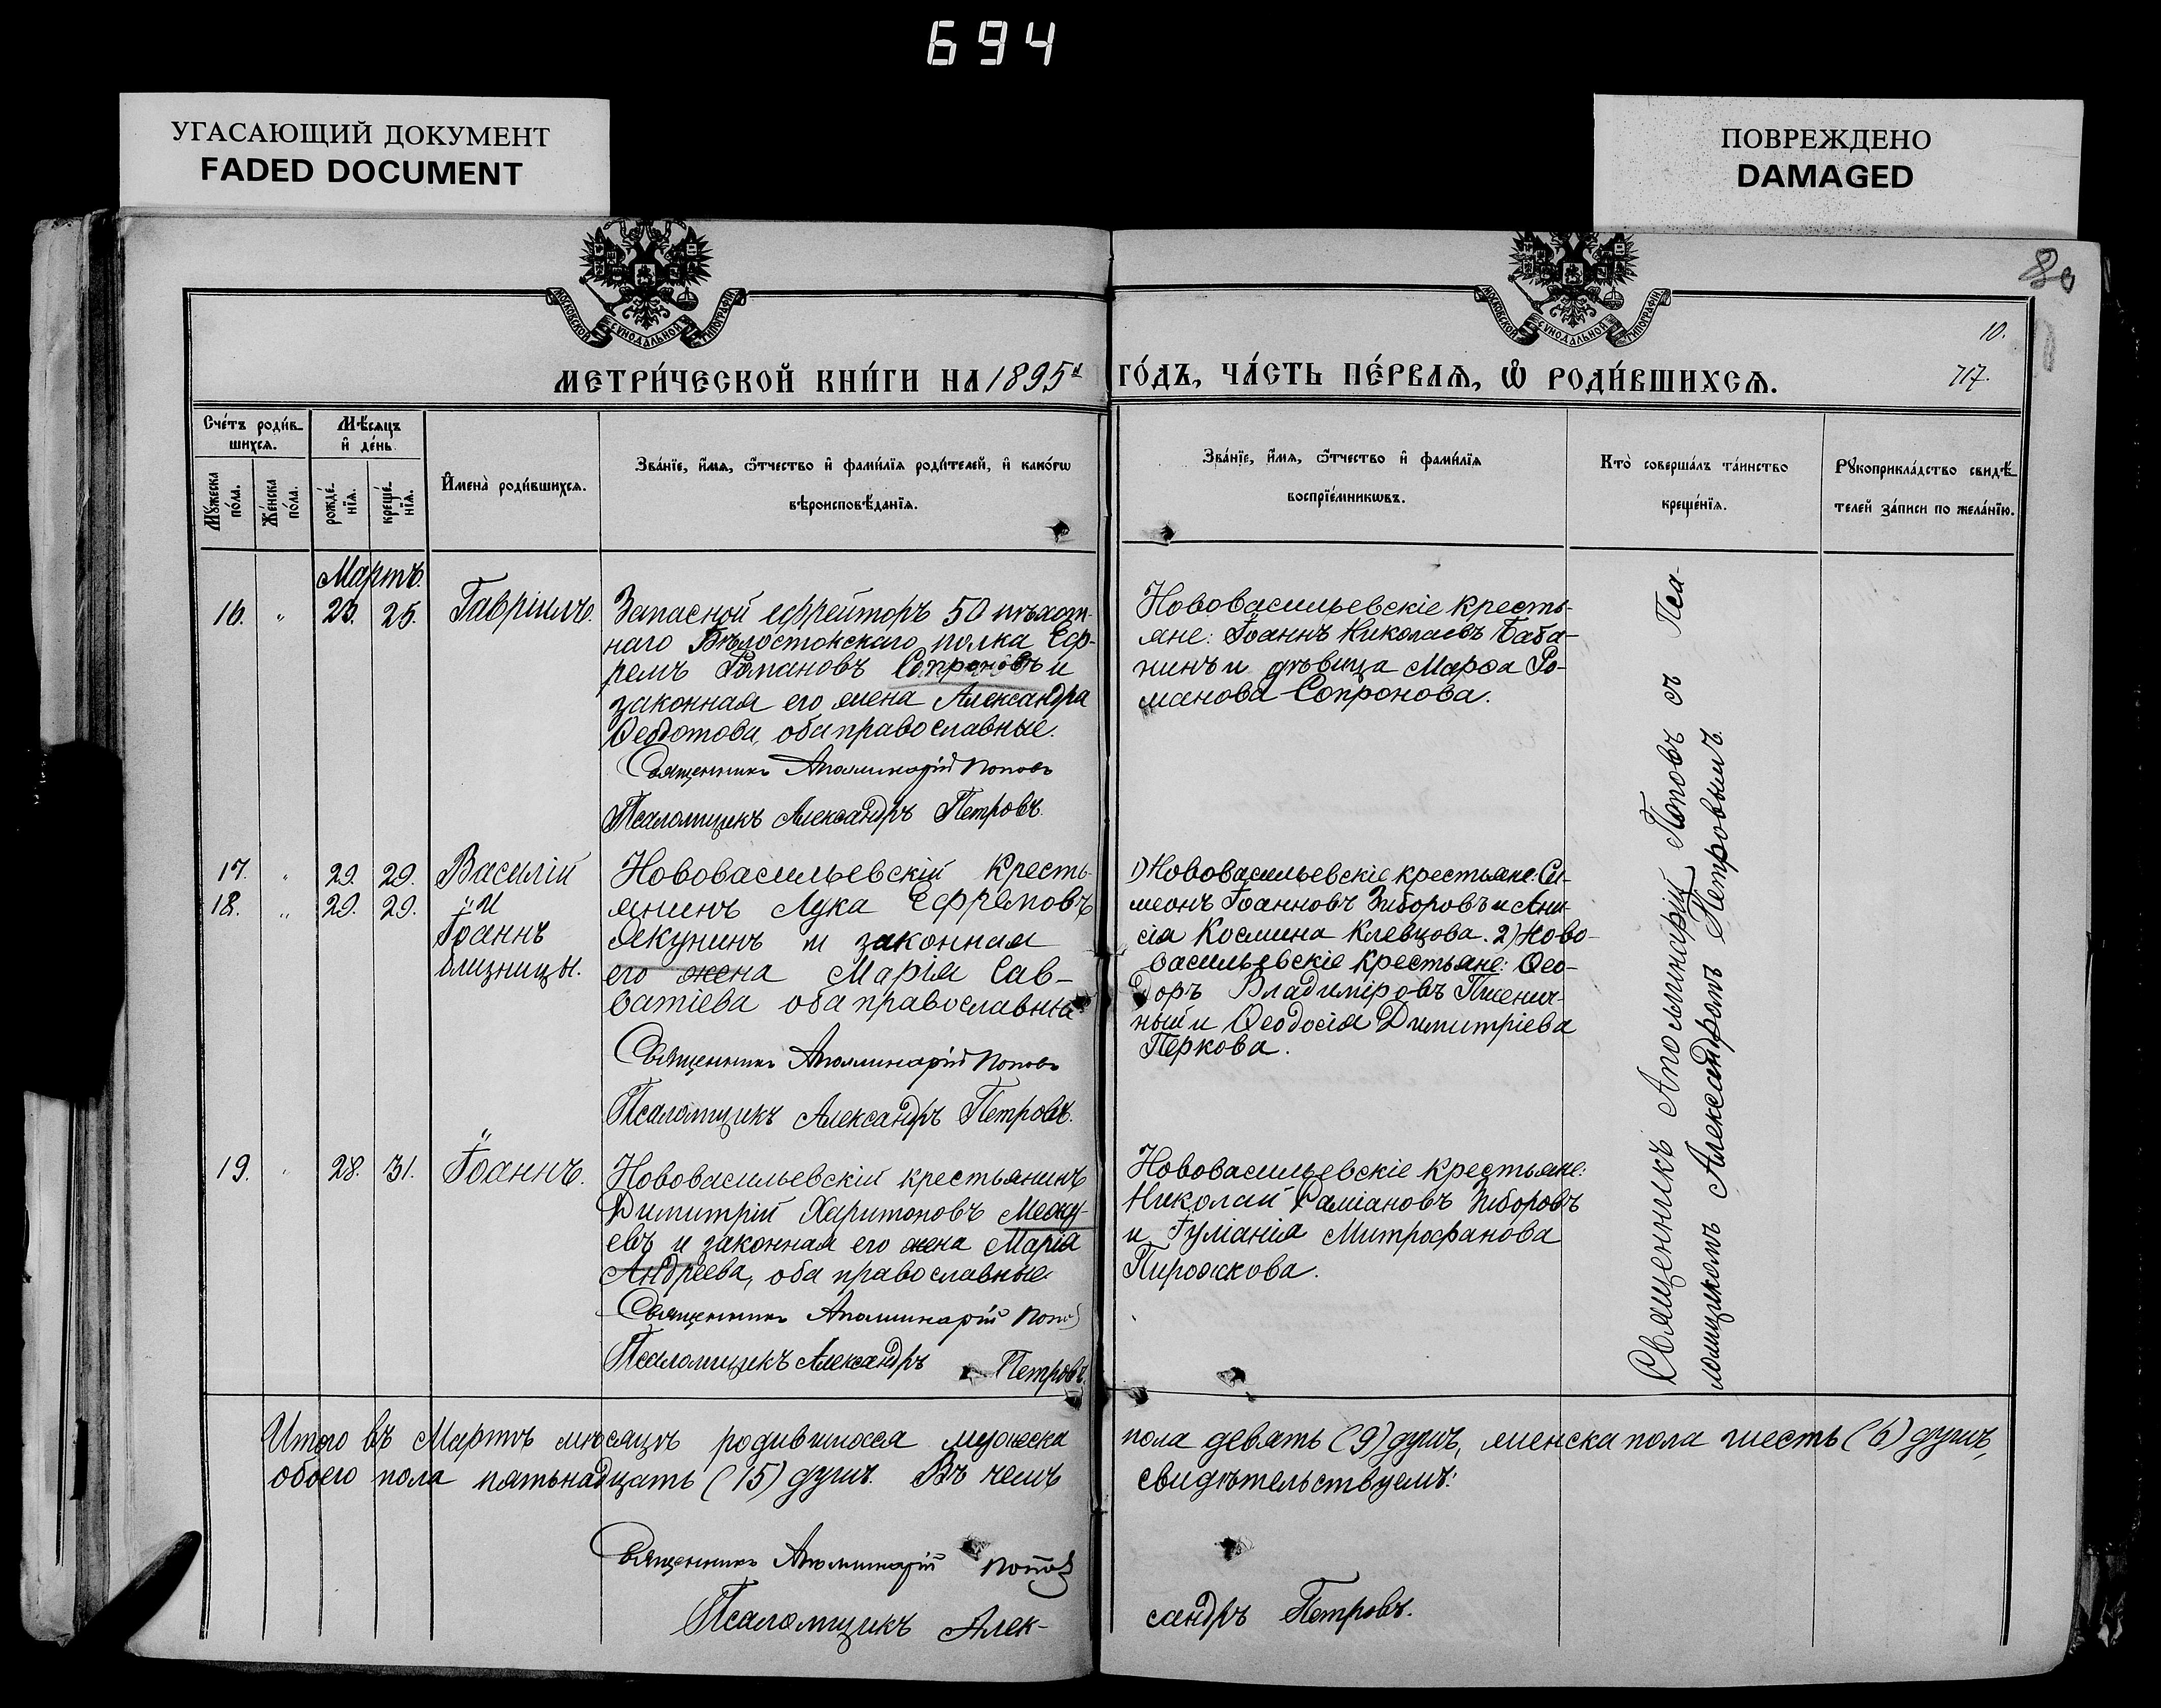 694
УГАСАЮЩИЙ ДОКУМЕНТ
FADED DOCUMENT
ПОВРЕЖДЕНО
DAMAGED
МОСКОВСКОЙ СѴНОДАЛЬНОЙ ТИПОГРАФІИ
МОСКОВСКОЙ СѴНОДАЛЬНОЙ ТИПОГРАФІИ
80
10.
717.
МЕТРИ́ЧЕСКОЙ КНИ́ГИ НА 1895й ГО́ДЪ, ЧА́СТЬ ПЕ́РВАѦ, Ѡ҆ РОДИ́ВШИХСѦ.
Сче́тъ роди́в-
шихсѧ.
Мꙋ́жеска
по́ла.
Же́нска
по́ла.
Мѣ́сѧцъ
и҆ де́нь
рожде́-
нїѧ.
креще́-
нїѧ.
И҆мена̀ роди́вшихсѧ.
Зва́нїе, и҆́мѧ, ѻ҆́тчество и҆ фами́лїѧ роди́телей, и҆ како́гѡ
вѣроисповѣ́данїѧ.
Зва́нїе, и҆́мѧ, ѻ҆́тчество и҆ фами́лїѧ
воспрїе́мникѡвъ.
Кто̀ соверша́лъ та́инство
креще́нїѧ.
Рꙋкоприкла́дство свидѣ́-
телей за́писи по жела́нїю.
Мартъ.
16. " 23. 25. Гавріилъ.
Запасной ефрейторъ 50 пѣхот-
наго Бѣлостокскаго полка Еф-
ремъ Романовъ Сопроновъ и
законная его жена Александра
Ѳеодотова, оба православные.
Священникъ Аполлинарій Поповъ
Псаломщикъ Александръ Петровъ.
Нововасильевскіе кресть-
яне: Іоаннъ Николаевъ Баба-
нинъ и дѣвица Марѳа Ро-
манова Сопронова.
17. " 29. 29. Василій
18. " 29. 29. и
Іоаннъ
близницы.
Нововасильевскій кресть-
янинъ Лука Ефремовъ
Якунинъ и законная
его жена Марія Сав-
ватіева оба православные
Священникъ Аполлинарій Поповъ
Псаломщикъ Александръ Петровъ.
1) Нововасильевскіе крестьяне: Си-
меонъ Іоанновъ Зиборовъ и Ани-
сія Космина Клевцова. 2) Ново-
васильевскіе крестьяне: Ѳео-
доръ Владиміровъ Пшенич-
ный и Ѳеодосія Димитріева
Перкова.
19. " 28. 31. Іоаннъ.
Нововасильевскій крестьянинъ
Димитрій Харитоновъ
евъ и законная его жена Марія
Андреева, оба православные.
Священникъ Аполлинарій Поповъ
Псаломщикъ Александръ Петровъ.
Нововасильевскіе крестьяне:
Николай Даміановъ Зиборовъ
и Іуліанія Митрофанова
Пирожкова.
Священникъ Аполинарій Поповъ съ Пса-
ломщикомъ Александромъ Петровымъ.
Итого въ Мартѣ мѣсяцѣ родившихся мужеска пола девять (9) душъ, женска пола шесть (6) душъ,
обоего пола пятьнадцать (15) душъ. Въ чемъ свидѣтельствуемъ:
Священникъ Аполлинарій Поповъ
Псаломщикъ Александръ Петровъ.